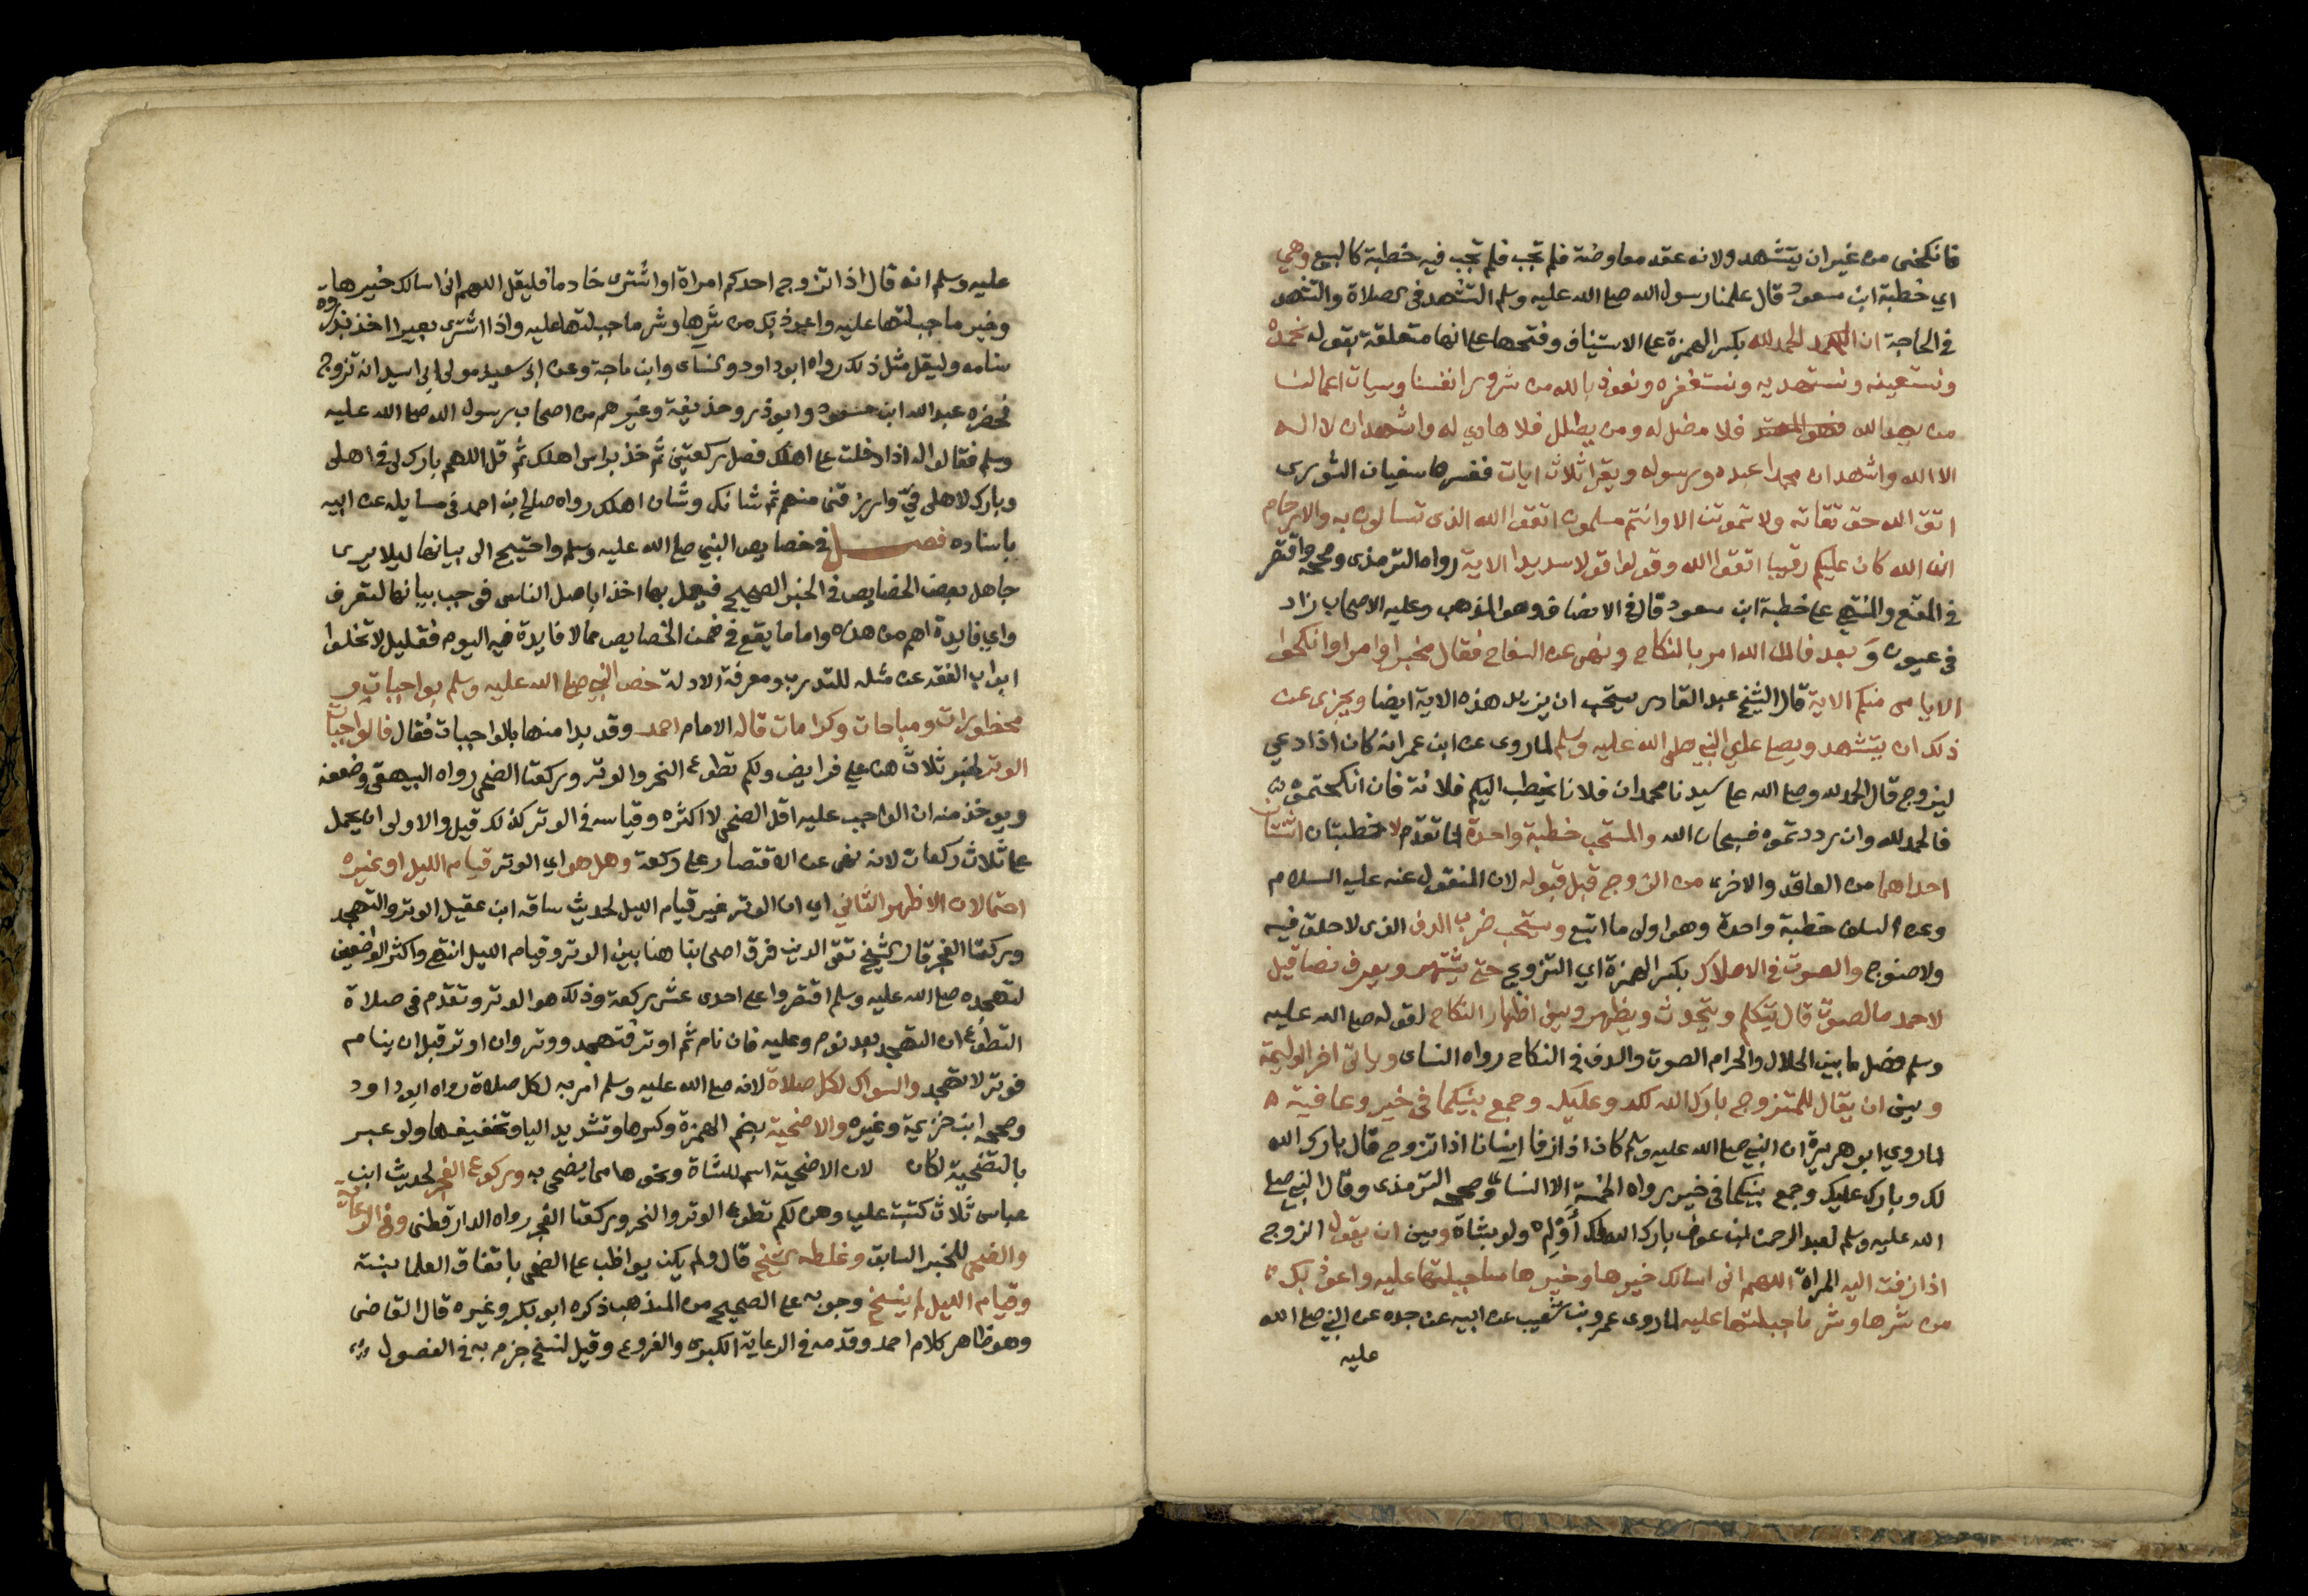 فانكحنى من غير ان يتشهد ولانه عقد معاوضة فلم تجب فلم تجب فيه خطبة كالبيع وهي
اي خطبة ابن مسعود قال علمنا رسول الله صلى الله عليه وسلم التشهد في الصلاة والتشهد
في الحاجة ان الحمد لله بكسر الهمزة على الاستيناف وفتحها على انها متعلقة بقوله نحمده
ونستعينه ونستهديه ونستغفره ونعوذ بالله من شرور انفسنا وسيات اعمالنا
من يهد الله فلا مضل له ومن يضلل فلا هادي له واشهد ان لا اله
الا الله واشهد ان محمدا عبده ورسوله ويقرا ثلاث ايات ففسرها سفيان الثوري
اتقوا الله حق تقاته ولا تموتن الا وانتم مسلمون اتقوا الله الذى تسالون به والارحام
ان الله كان عليكم رقيبا اتقوا الله وقولوا قولا سديدا الاية رواه الترمذى وصححه واقتصر
في المقنع والمنتهى على خطبة ابن مسعود قال في الانصاف وهو المذهب وعليه الاصحاب زاد
في عيون وَبعد فان الله امر بالنكاح ونهى عن السفاح فقال مخبرا وامرا وانكحوا
الايامى منكم الاية قال الشيخ عبد القادر يستحب ان يزيد هذه الاية ايضا ويجزى عن
ذلك ان يتشهد ويصلي على النبي صلى الله عليه وسلم لما روى عن ابن عمر انه كان اذا دعي
ليزوج قال الحمد لله وصلى الله على سيدنا محمد ان فلانا يخطب اليكم فلانة فان انكحتموه
فالحمد لله وان رددتموه فسبحان الله والمستحب خطبة واحدة لما تقدم لا خطبتان اثنتان
احداهما من العاقد والاخرى من الزوج قبل قبوله لان المنقول عنه عليه السلام
وعن السلف خطبة واحدة وهو اولى ما اتبع ويستحب ضرب الدف الذى لا حلق فيه
ولا صنوج والصوت في الاملاك بكسر الهمزة اي التزويج حتى يشتهر ويعرف نصا قيل
لاحمد ما الصوت قال يتكلم ويتحدث ويظهر ويسن اظهار النكاح لقوله صلى الله عليه
وسلم فصل ما بين الحلال والحرام الصوت والدف في النكاح رواه النساى وياتى اخر الوليمة
ويسن ان يقال للمتزوج بارك الله لك وعليك وجمع بينكما في خير وعافية
لما روي ابو هريرة ان النبي صلى الله عليه وسلم كان اذا رفا انسانا اذا تزوج قال بارك الله
لك وبارك عليك وجمع بينكما في خير رواه الخمسة الا النساى وصححه الترمذى وقال النبي صلى
الله عليه وسلم لعبد الرحمن ابن عوف بارك الله لك أَوْلِم ولو بشاة ويسن ان يقول الزوج
اذا زفت اليه المراة اللهم اني اسالك خيرها وخير ما جبلتها عليه واعوذ بك
من شرها وشر ما جبلتها عليه لما روى عمرو بن شعيب عن ابيه عن جده عن النبي صلى الله
عليه
عليه وسلم انه قال اذا تزوج احدكم امراة او اشترى خادما فليقل اللهم انى اسالك خيرها
وخير ما جبلتها عليه واعوذ بك من شرها وشر ما جبلتها عليه واذا اشترى بعيرا اخذ بذروة
سنامه وليقل مثل ذلك رواه ابو داود والنساى وابن ماجة وعن ابي سعيد مولى ابي اسيد انه تزوج
فحضره عبد الله ابن مسعود وابو ذر وحذيفة وغيرهم من اصحاب رسول الله صلى الله عليه
وسلم فقالوا له اذا دخلت على اهلك فصل ركعتين ثم خذ براس اهلك ثم قل اللهم بارك لى في اهلى
وبارك لاهلى فيّ وارزقنى منهم ثم شانك وشان اهلك رواه صالح ابن احمد في مسايله عن ابيه
باسناده فصل في خصايص النبي صلى الله عليه وسلم واحتيج الى بيانها ليلا يرى
جاهل بعض الخصايص في الخبر الصحيح فيعمل بها اخذا باصل الناس فوجب بيانها لتعرف
واي فايدة اهم من هذه واما ما يقع في ضمن الخصايص مما لا فايدة فيه اليوم فقليل لا تخلوا
ابواب الفقه عن مثله للتدرب ومعرفة الادلة خص النبي صلى الله عليه وسلم بواجبات و
محظورات ومباحات وكرامات قاله الامام احمد وقد بدا منها بالواجبات فقال فالواجبات
الوتر لخبر ثلاث هن علي فرايض ولكم تطوع النحر والوتر وركعتا الضحى رواه البيهقى وضعفه
ويوخذ منه ان الواجب عليه اقل الضحى لا اكثره وقياسه في الوتر كذلك قيل والاولى ان يحمل
على ثلاث ركعات لانه نهى عن الاقتصار على ركعة وهل هو اي الوتر قيام الليل او غيره
احتمالان الاظهر الثاني اي ان الوتر غير قيام الليل لحديث ساقه ابن عقيل الوتر والتهجد
وركعتا الفجر قال الشيخ تقى الدين فرق اصحابنا هنا بين الوتر وقيام الليل انتهى واكثر الواضعين
لتهجده صلى الله عليه وسلم اقتصروا على احدى عشر ركعة وذلك هو الوتر وتقدم في صلاة
التطوع ان التهجد بعد نوم وعليه فان نام ثم اوتر فتهجد ووتر وان اوتر قبل ان ينام
فوتر لا تهجد والسواك لكل صلاة لانه صلى الله عليه وسلم امر به لكل صلاة رواه ابو داود
وصححه ابن خزيمة وغيره والاضحية بضم الهمزة وكسرها وتشديد اليا وتخفيفها ولو عبر
بالتضحية لكان لان الاضحية اسم للشاة ونحوها مما يضحى به وركوع الفجر لحديث ابن
عباس ثلاث كتبت علي وهن لكم تطوع الوتر والنحر وركعتا الفجر رواه الدارقطنى وفي الرعاية
والضحى للخبر السابق وغلطه الشيخ قال ولم يكن يواظب على الضحى باتفاق العلما بسنته
وقيام الليل لم ينسخ وجوبه على الصحيح من المذهب ذكره ابو بكر وغيره قال القاضى
وهو ظاهر كلام احمد وقدمه في الرعاية الكبرى والفروع وقيل نسخ جزم به في الفصول